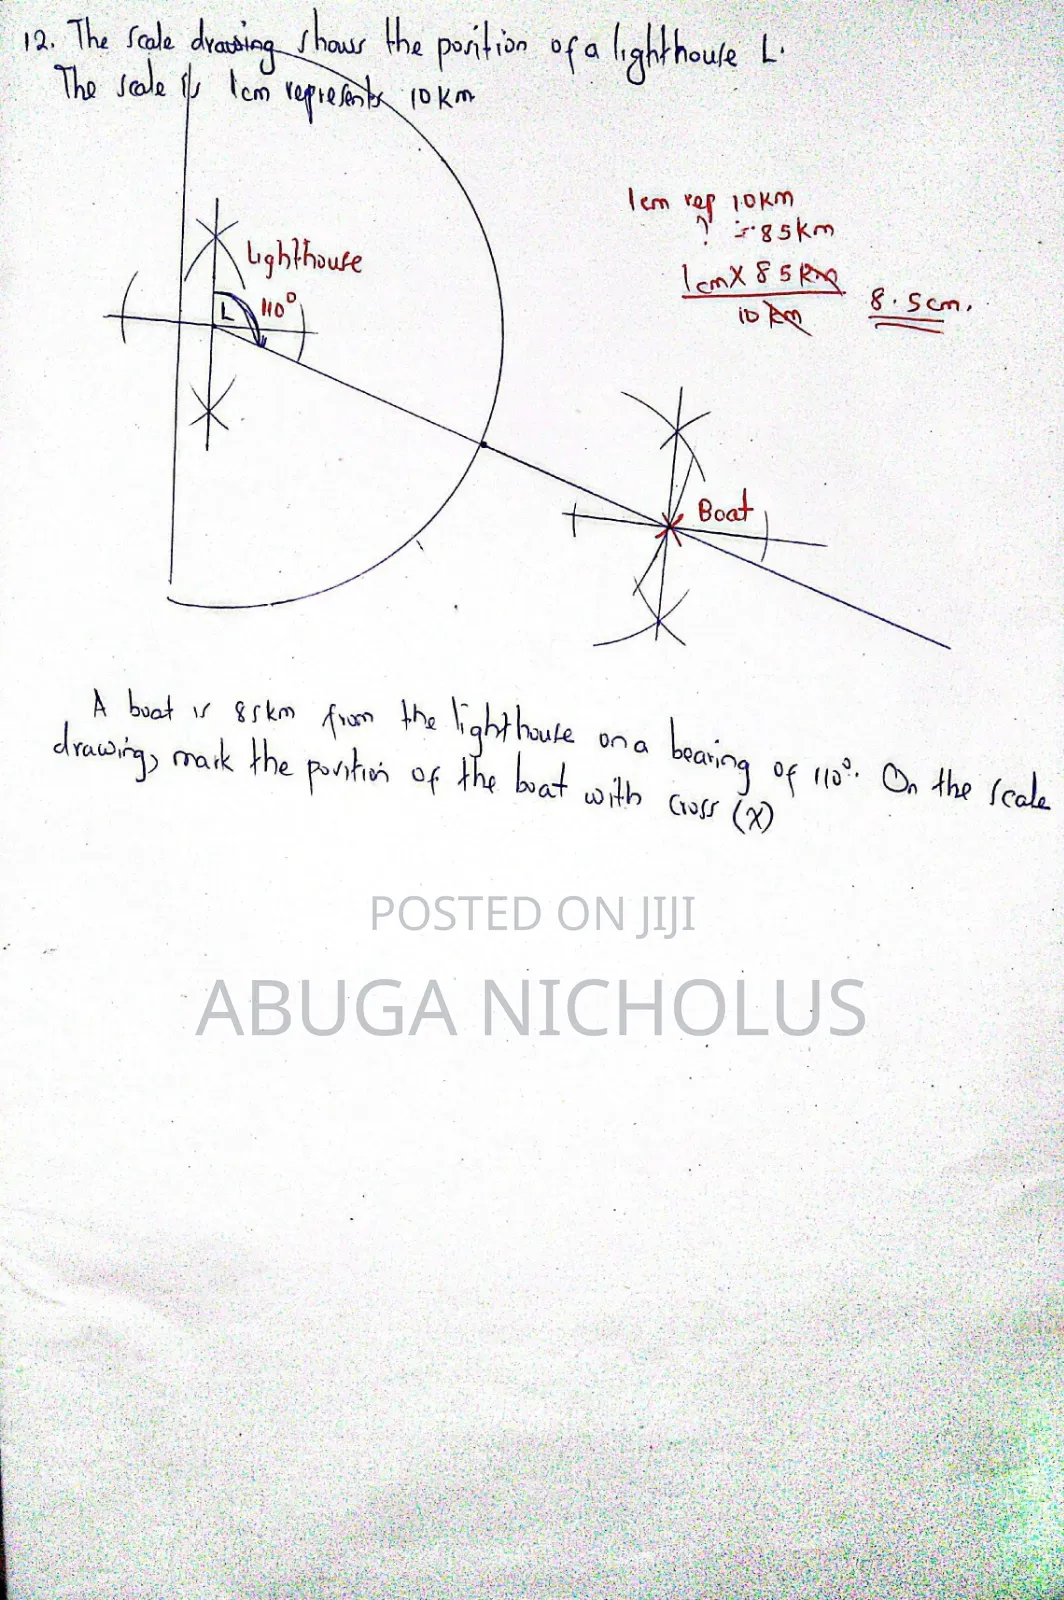 12. The scale drawing shows the position of a lighthouse L.
The scale is 1cm represents 10 Km
1cm rep 10Km
? = 85km
Lighthouse
1cm X 85km
8.5cm.
L 110°
10 km
Boat
A boat is 85km from the lighthouse on a bearing of 110°. On the scale
drawing, mark the position of the boat with cross (X)
POSTED ON JIJI
ABUGA NICHOLUS